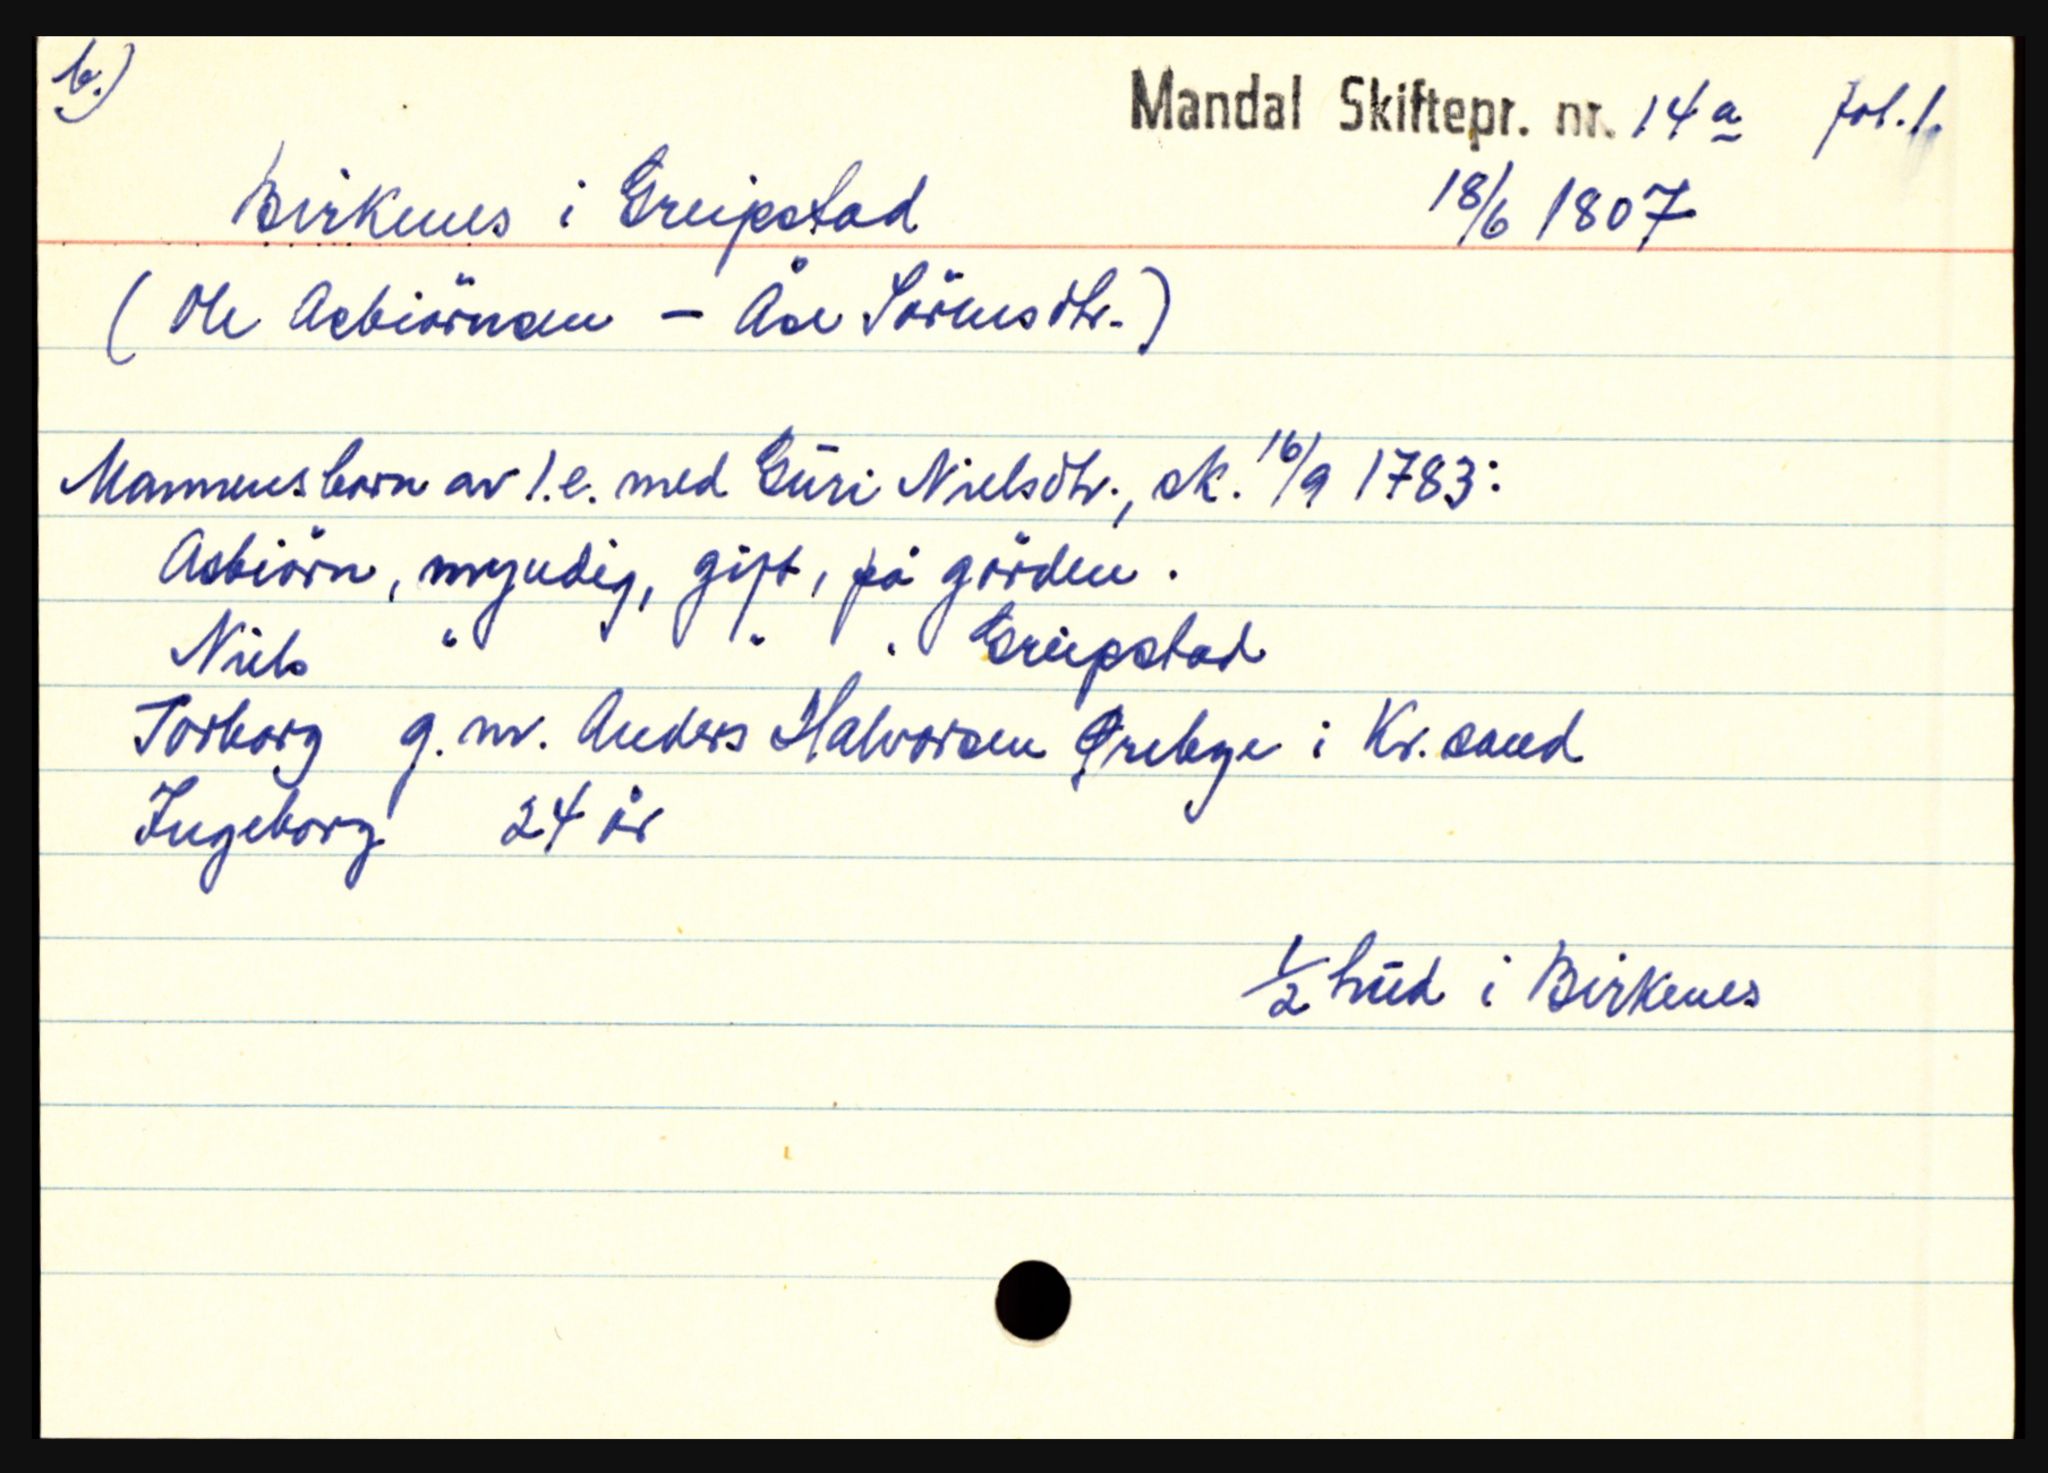 b.)
Mandal Skiftepr. nr. 14a fol. 1.
Birkenes i Greipstad 18/6 1807
(Ole Asbiörnsen - Åse Sörensdtr.)
Mannens barn av 1.e. med Gūri Nielsdtr., sk. 16/9 1783:
Asbiörn, myndig, gift, på gården.
Niels " " " Greipstad
Torborg g. m. Anders Halvorsen Ørebye i Kr.sand
Ingeborg 24 år
1/2 hūd i Birkenes